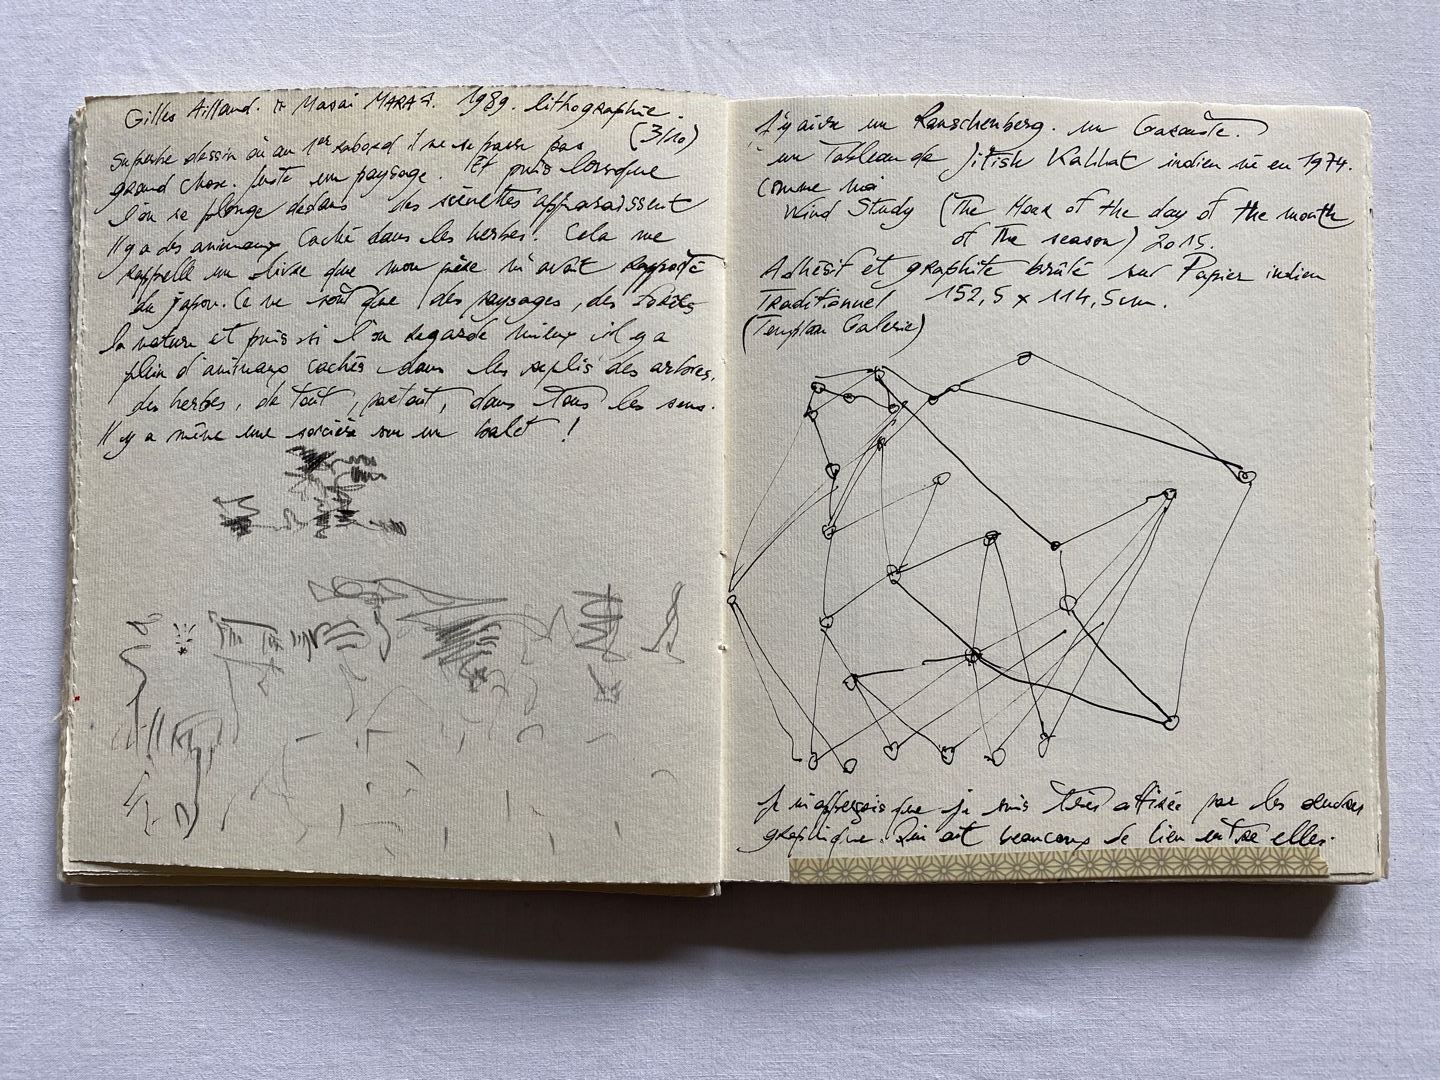 Gilles Aillaud. Masai MARA 7. 1989. lithographie.
(3/10)
Superbe dessin où au 1er abord il ne se passe pas
grand chose. Juste un paysage. Et puis lorsque
l'on se plonge dedans des scènettes apparaissent
Il y a des animaux caché dans les herbes. Cela me
rappelle un livre que mon père m'avait rapporté
du Japon. Ce ne sont que des paysages, des forêts
la nature et puis si l'on regarde mieux il y a
plein d'animaux cachés dans les replis des arbres,
des herbes, de tout, partout, dans tous les sens.
Il y a même une sorcière sur un balet !
Il y aussi un Rauschenberg. un
un Tableau de Jitish Kallat indien né en 1974.
comme moi
Wind Study (The Hour of the day of the month
of the season) 2015.
Adhésif et graphite brûlé sur Papier indien
Traditionnel 152,5 x 114,5cm.
(Templon Galerie)
Je m'apperçois que je suis très attirée par les
graphique. Qui ont beaucoup de lien entre elles.